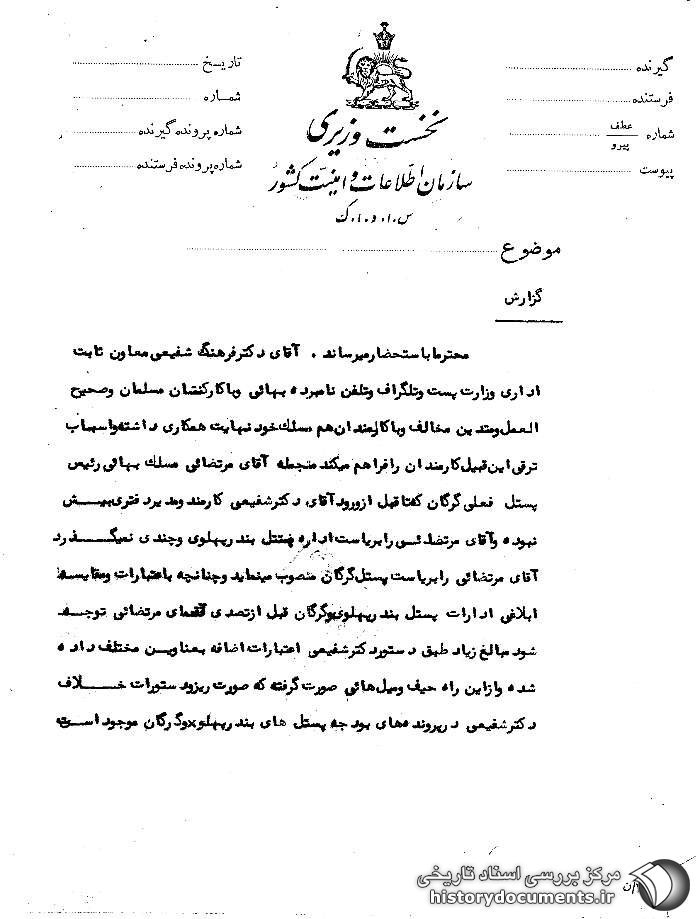 گیرنده
فرستنده
شماره عطف پیرو
پیوست
تاریخ
شماره
شماره پرونده گیرنده
شماره پرونده فرستنده
نخست وزیری
سازمان اطلاعات و امنیت کشور
س.ا.و.ا.ک
موضوع
گزارش
محترما باستحضار میرساند . آقای دکتر فرهنگ شفیعی معاون ثابت
اداری وزارت پست وتلگراف وتلفن نامبرده بهائی وباکارکنشان مسلمان وصحیح
العمل ومتدین مخالف وباکارمندان هم مسلك خود نهایت همکاری داشته واسباب
ترقی این قبیل کارمندان را فراهم میکند منجمله آقای مرتضائی مسلك بهائی رئیس
پستل فعلی گرگان که تا قبل ازورود آقای دکترشفیعی کارمند ومدیر دفتری بیش
نبوده وآقای مرتضائی را بریاست اداره پستل بندر پهلوی وچندی نمیگذرد
آقای مرتضائی را بریاست پستل گرگان منصوب مینماید وچنانچه باعتبارات ومقایسه
ابلاغی ادارات پستل بندر پهلوی وگرگان قبل ازتصدی آقای مرتضائی توجه
شود مبالغ زیاد طبق دستور دکترشفیعی اعتبارات اضافه بعناوین مختلف داده
شده وازاین راه حیف ومیل هائی صورت گرفته که صورت ریزود ستورات خلاف
دکترشفیعی در پرونده های بودجه پستل های بندر پهلوی وگرگان موجود است
مرکز بررسی اسناد تاریخی
historydocuments.ir